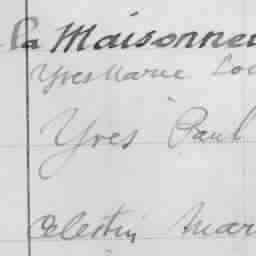 la Maisonneu
Yves Marie Loc
Yves Paul
Celestin Mar